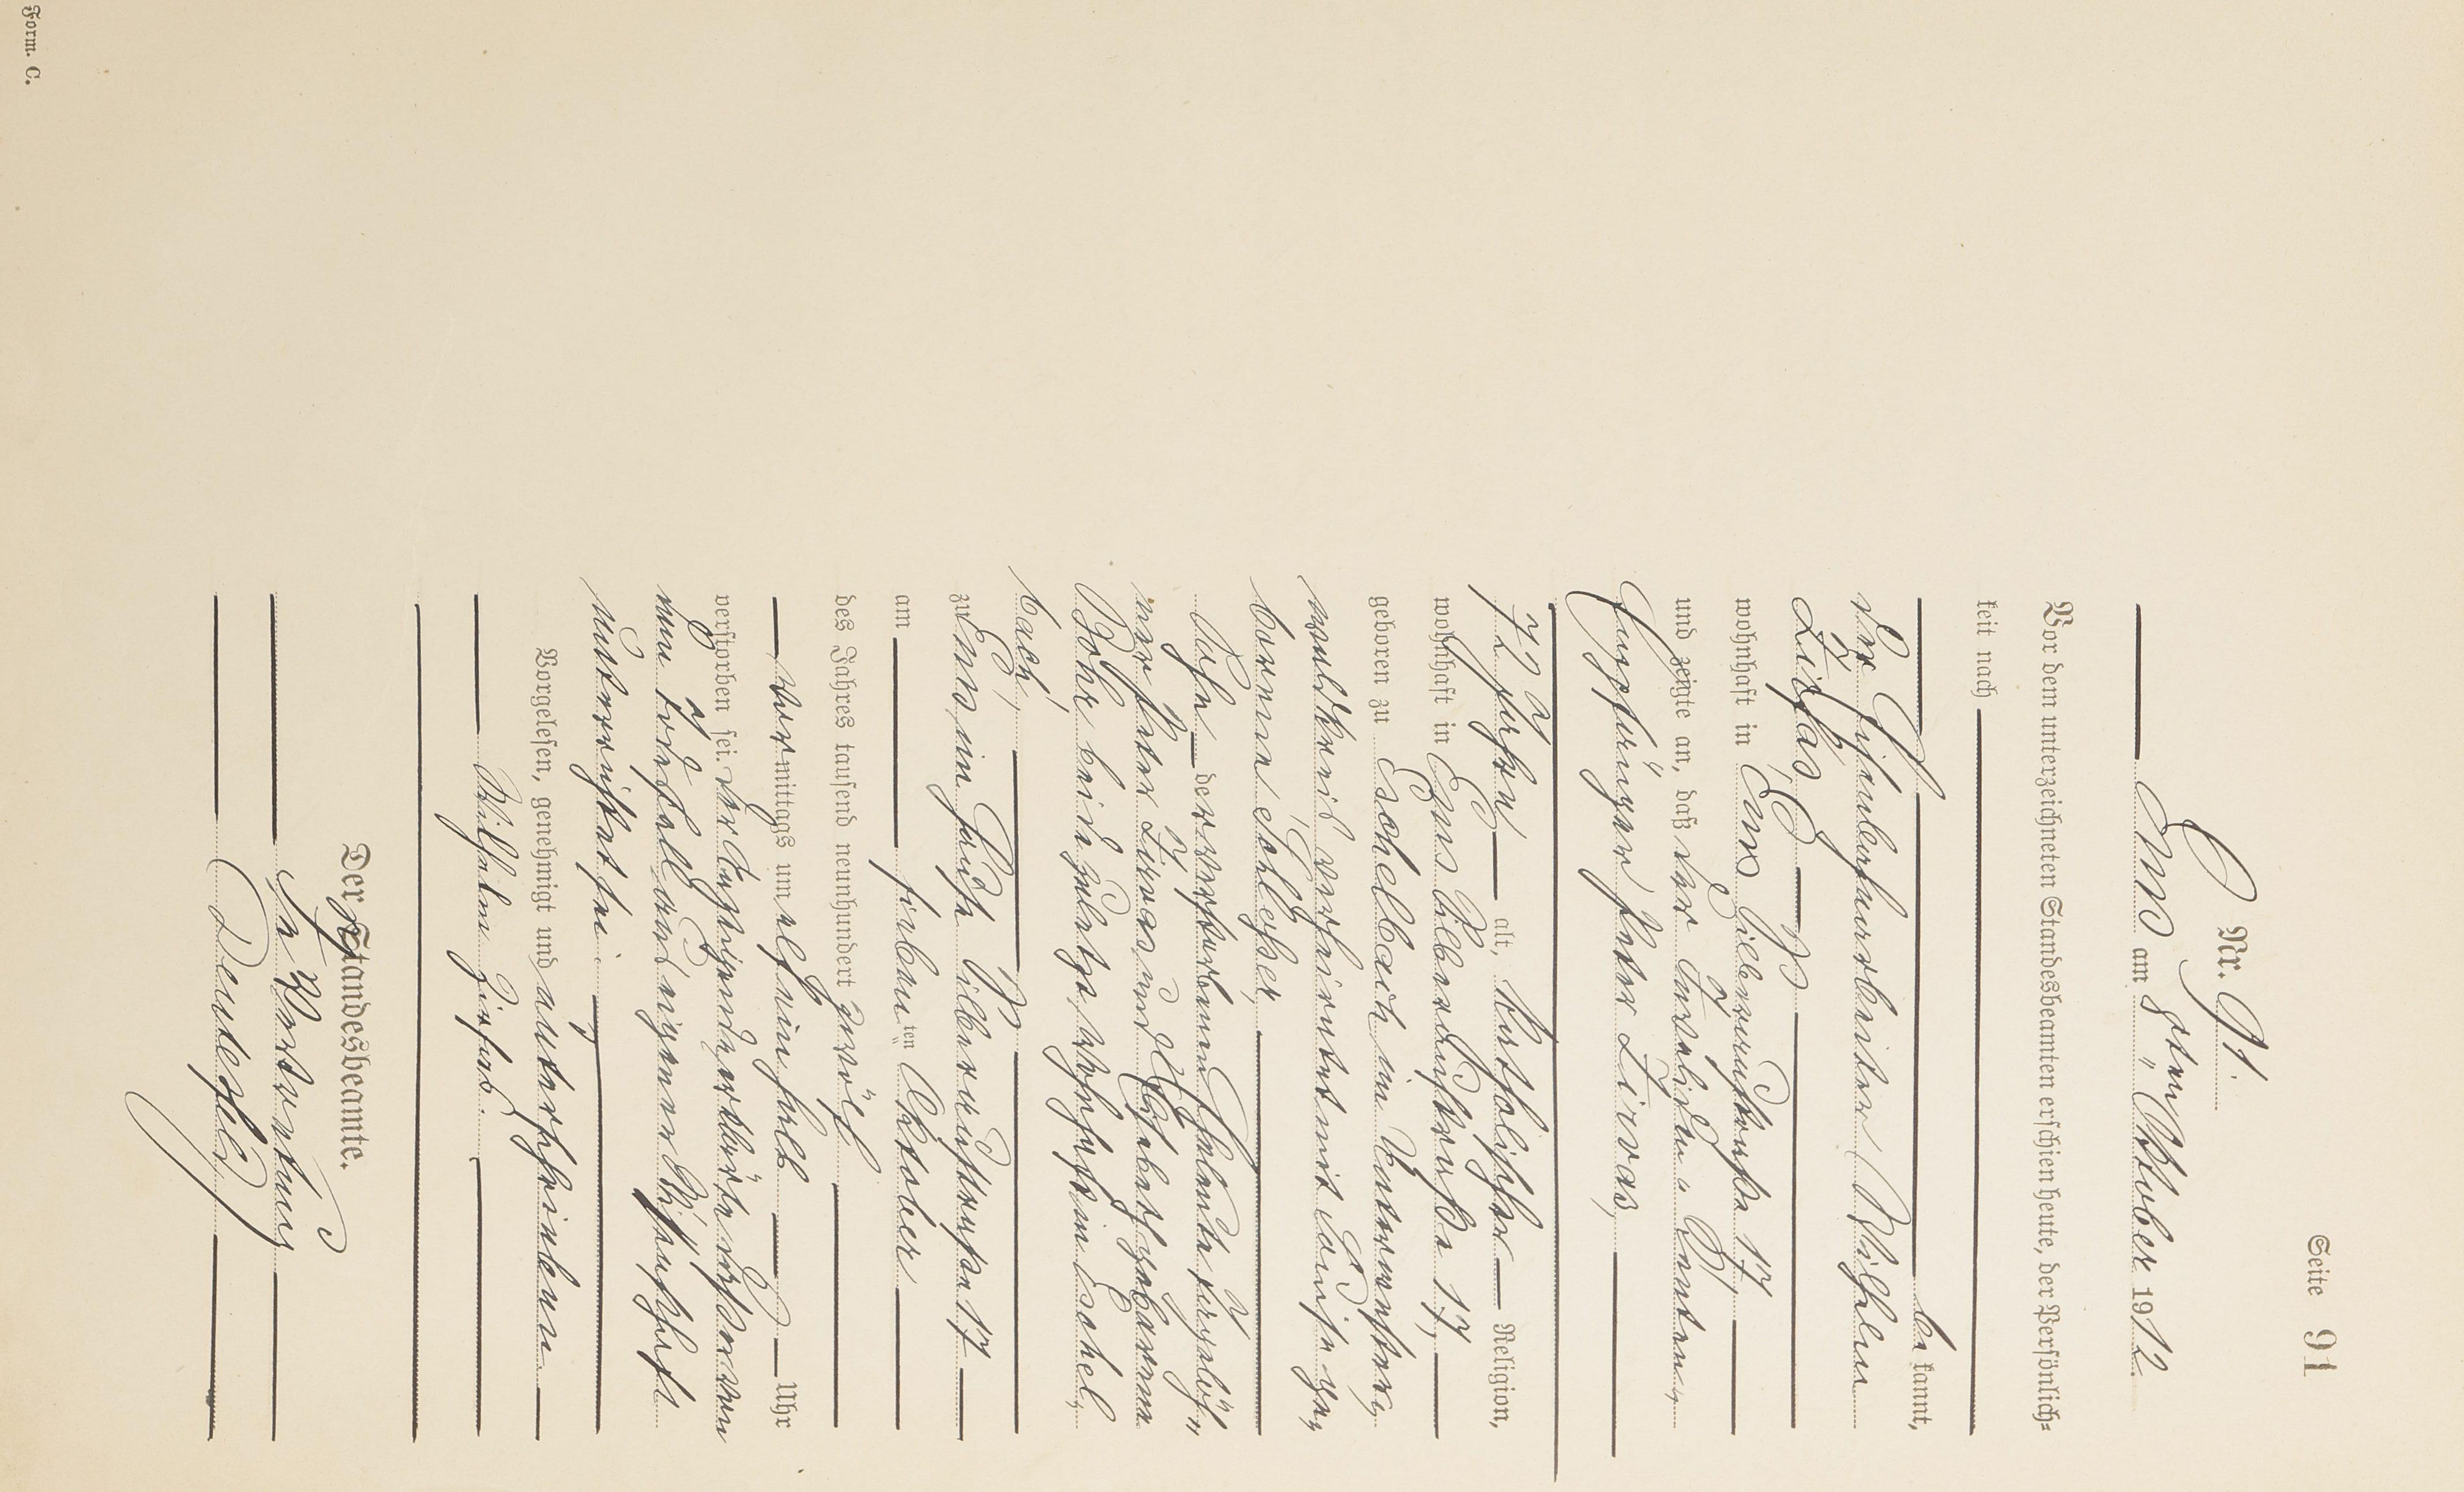 Seite 91
Nr. 91.
Ems am 8ten Oktober 1912.
Vor dem unterzeichneten Standesbeamten erschien heute, der Persönlich-
keit nach
bekannt,
der Eisenbahnarbeiter Wilhelm
wohnhaft in Ems, Silberaustraße 17,
und zeigte an, daß der Invaliden- Renten-
empfänger Peter Lirvas,
72 Jahre alt, katholischer Religion,
wohnhaft in Ems Silberaustraße 17,
geboren zu Eschelbach im Unterwester-
waldkreis verheiratet mit Louise ge-
borene Schlosser,
Sohn der verstorbenen Eheleute Tagelöh-
ner Peter Lirvas und Elisabeth geborene
beide zuletzt wohnhaft in Eschel-
bach,
zu Ems, im Hause Silberaustraße 17
am siebenten Oktober
des Jahres tausend neunhundert zwölf
Vormittags um elf ein halb Uhr
verstorben sei. Der Anzeigende erklärte daß er von
dem Todesfall aus eigener Wissenschaft
unterrichtet sei.
Vorgelesen, genehmigt und unterschrieben
Wilhelm
Der Standesbeamte.
In Vertretung
Form. C.